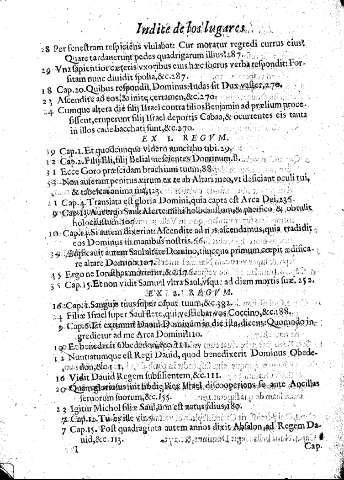 Indice de los lugares
28 Per fenestram respiciẽs vlulabat: Cur moratur regredi currus eius?
Quare tardauerunt pedes quadrigarum illius? 287.
29 Vna sapientior cæteris vxoribus eius hæc socrus verba respondit: For
sitan nunc diuidit spolia, &c. 287.
18 Cap. 20. Quibus respondit, Dominus: Iudas sit Dux vester, 270.
23 Ascendite ad eos, & inite certamen, &c. 270.
24 Cumque altera die filij Israel contra filios Beniamin ad prælium proces
sissent, eruperunt filij Israel de portis Gabaa, & occurrentes eis tanta
in illos cæde bacchati sunt, &c. 270.
EX 1. REGVM.
19 Cap. 1. Et quodcumque videro nunciabo tibi. 29.
12 Cap. 2. Filij Eli, filij Belial nescientes Dominum, 8.
31 Ecce Goro præcidam brachium tuum, 88.
Non auferam penitus virum ex te ab Altari meo, vt deficiant oculi tui,
& tabescat anima tua, 123.
21 Cap. 4. Translata est gloria Domini, quia capta est Arca Dei, 236.
9 Cap. 13. Saul Aferte mihi holocaustum, & pacifica & obtulit
holocaustum. 105.
10 Cap. 14. Si autem dixerint: Ascendite ad nos ascendamus, quia tradidit
eos Dominus in manibus nostris. 66.
35 Ædificauit autem Saul altare Domino, tuncque primum cœpit ædifica-
re altare Domino. 107.
45 Ergo ne Ionathas morietur, &c. 176.
35 Cap. 15. Et non vidit Samuel vltra Saul, vsque ad diem mortis suæ. 252.
EX 2. REGVM.
16 Cap. 1. Sanguis tuus super caput tuum, &c. 392.
24 Filiæ Israel super Saul flete, qui vestiebat vos Coccino, &c. 189.
9 Cap. 6. Et extimuit Dauid Dominum in die illa, dicens: Quomodo in-
gredietur ad me Arca Domini? 110.
Et benedixit Obededom, &c. 111.
12 Nuntiatumque est Regi Dauid, quod benedixerit Dominus Obede-
dom, &c. 111.
16 Vidit Dauid Regem subsilientem, &c. 111.
20 Quam gloriosus fuit hodie Rex Israel, discooperiens se ante Ancillas
seruorum suorum, &c. 155.
23 Igitur Michol filiæ Saul non est natus filius, 189.
7 Cap. 12. Tu es ille vir.
7 Cap. 15. Post quadraginta autem annos dixit Absalon ad Regem Da-
uid, &c. 113.
Cap.